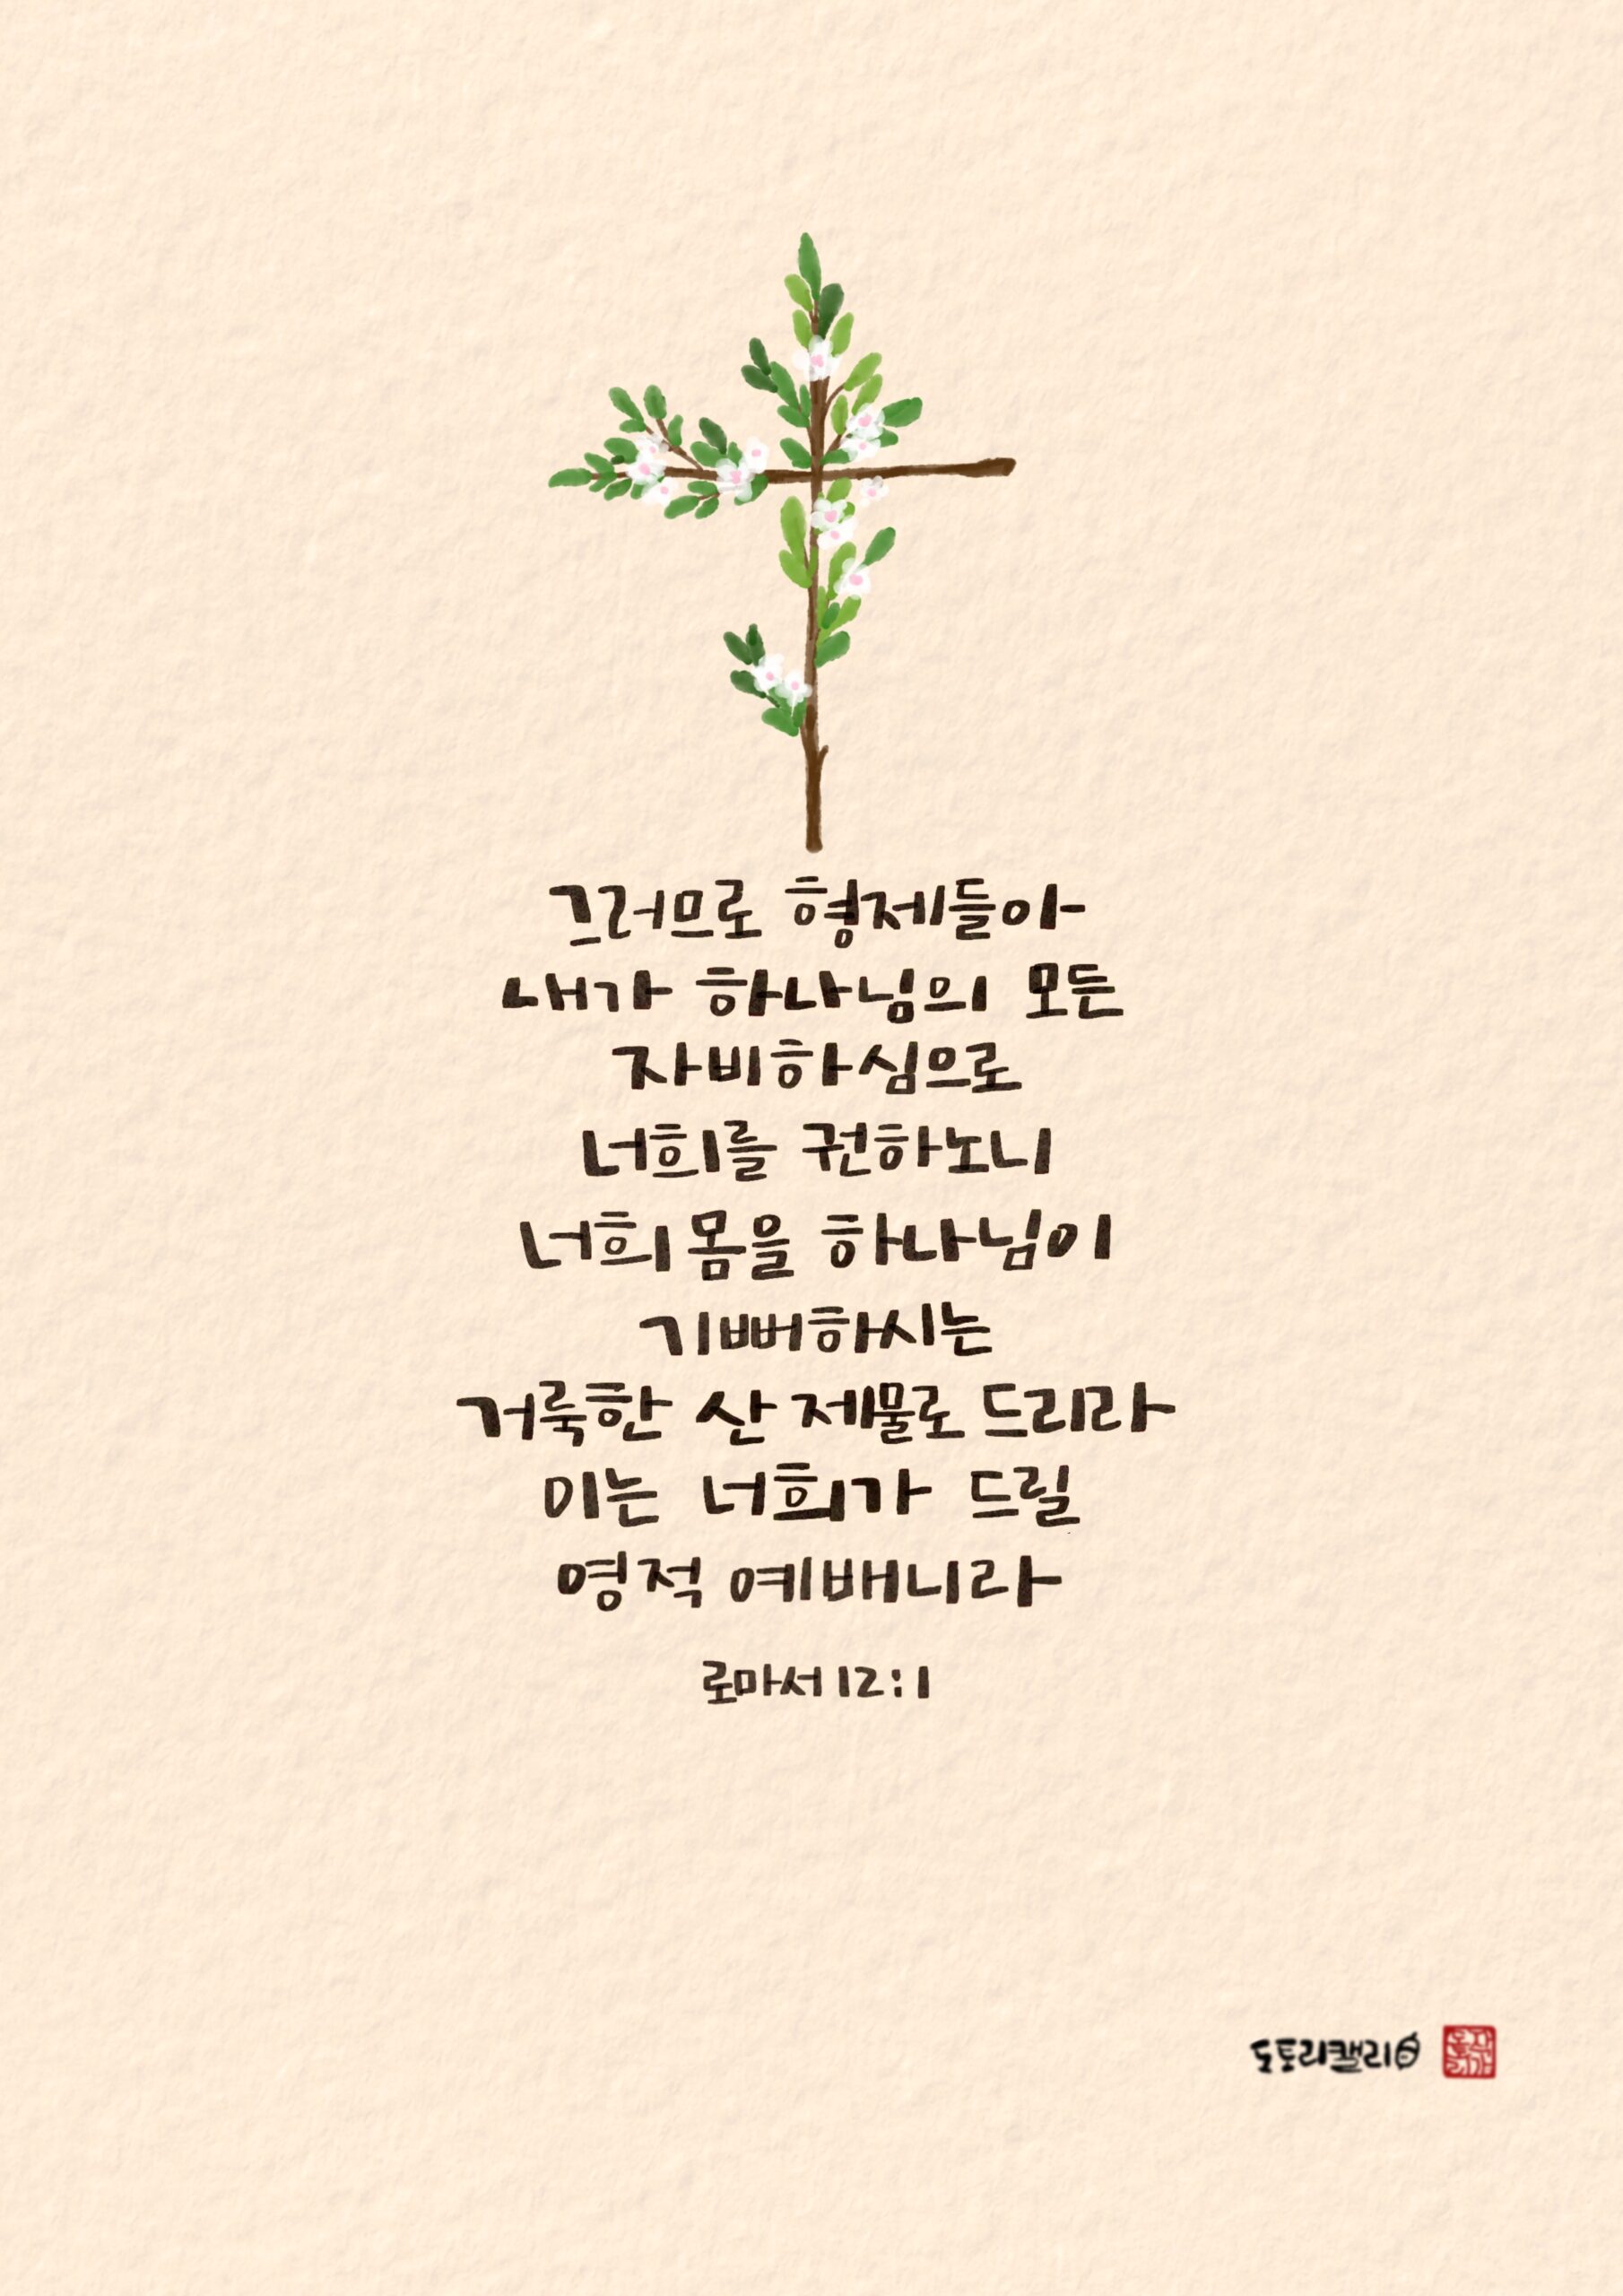 그러므로 형제들아
내가 하나님의 모든
자비하심으로
너희를 권하노니
너희 몸을 하나님이
기뻐하시는
거룩한 산 제물로 드리라
이는 너희가 드릴
영적 예배니라
로마서 12:1
도토리캘리